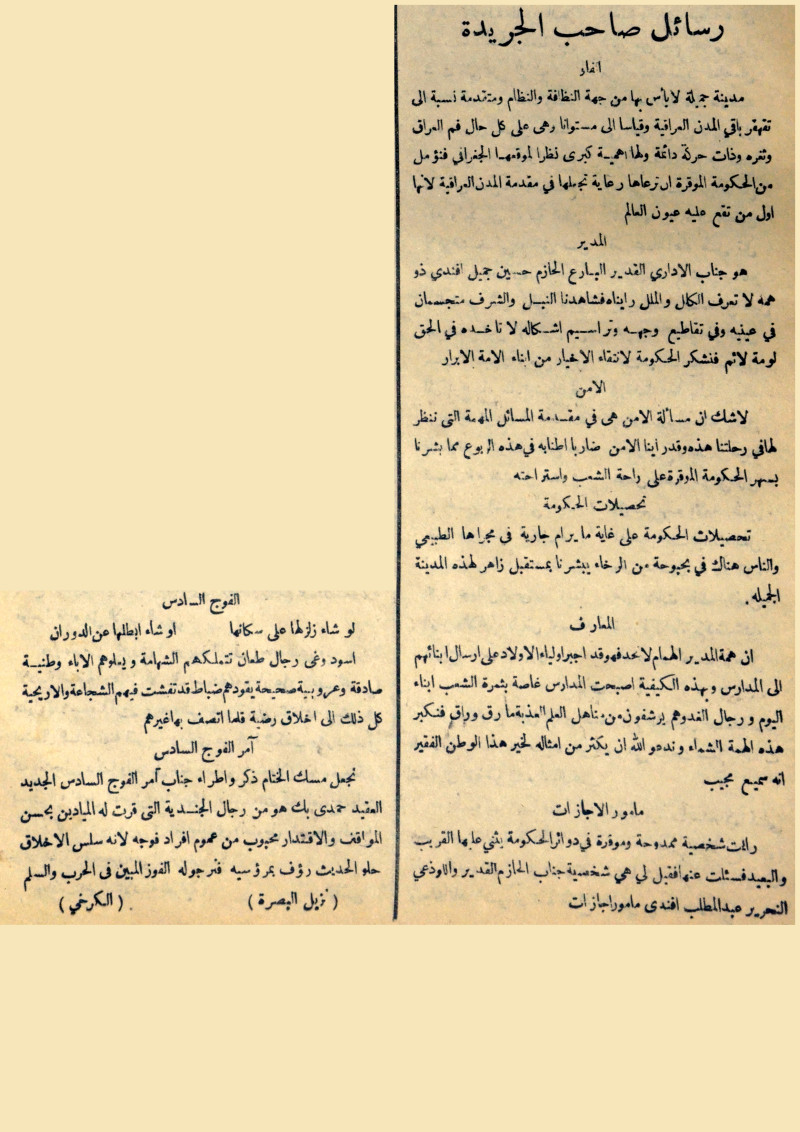 رسائل صاحب الجريدة
الفاو
مدينة جميلة لا بأس بها من جهة النظافة والنظام ومتقدمة نسبة الى
تقهقر باقي المدن العراقية وقياسا الى مستوانا وهى على كل حال فم العراق
وثغره وذات حركة دائمة ولها اهمية كبرى نظرا لموقعها الجغرافي فنؤمل
من الحكومة الموقرة ان ترعاها رعاية تجعلها في مقدمة المدن العراقية لانها
اول من تقع عليه عيون العالم
المدير
هو جناب الاداري القدير البارع الحازم حسين جميل افندي ذو
همه لا تعرف الكلل والملل رايناه فشاهدنا النبل والشرف متجسمان
في عينيه وفي تقاطيع وجهه وتراسيم اشكاله لا تاخذه في الحق
لومة لائم فنشكر الحكومة لانتقاء الاخيار من ابناء الامة الابرار
الامن
لاشك ان مسألة الامن هى في مقدمة المسائل المهمة التى ننظر
لها في رحلتنا هذه وقد راينا الامن ضاربا اطنابه في هذه الربوع مما بشرنا
بسهر الحكومة الموقرة على راحة الشعب واستراحته
تحصيلات الحكومة
تحصيلات الحكومة على غاية ما يرام جارية في مجراها الطبيعي
والناس هناك في بحبوحة من الرخاء يبشرنا بمستقبل زاهر لهذه المدينة
الجميله.
المعارف
ان همة المدير الهمام لا تحد فهو قد اجبر اولياء الاولاد على ارسال ابنائهم
الى المدارس وبهذه الكيفية اصبحت المدارس غاصة بثمرة الشعب ابناء
اليوم ورجال الغد وهم يرشفون من مناهل العلم العذبة ما رق وراق فنكبر
هذه الهمة الشماء وندعو الله ان يكثر من امثاله لخير هذا الوطن الفقير
انه سميع مجيب
مامور الاجازات
رائت شخصية ممدوحة وموقرة في دوائر الحكومة يثني عليها القريب
والبعيد فسئلت عنها فقيل لي هي شخصية جناب الحازم القدير واللوذعي
النحرير عبدالمطلب افندى مامور اجازات
الفوج السادس
لو شاء زلزلها على سكانها او شاء ابطلها عن الدوران
اسود وغى رجال طعان تتملكهم الشهامة ويملوهم الاباء وطنية
صادقة وعروبية صحيحة يقودهم ضباط قد تفشت فيهم الشجاعة والاريحية
كل ذلك الى اخلاق رضية قلما اتصف بها غيرهم
آمر الفوج السادس
نجعل مسك الختام ذكر واطراء جناب آمر الفوج السادس الجديد
العقيد حمدى بك هو من رجال الجندية التى قرت له الميادين بحسن
المواقف والاقتدار محبوب من عموم افراد فوجه لانه سلس الاخلاق
حلو الحديث رؤف بمرؤسيه فنرجو له الفوز المبين فى الحرب والسلم
( نزيل البصرة ) ( الكرخي )